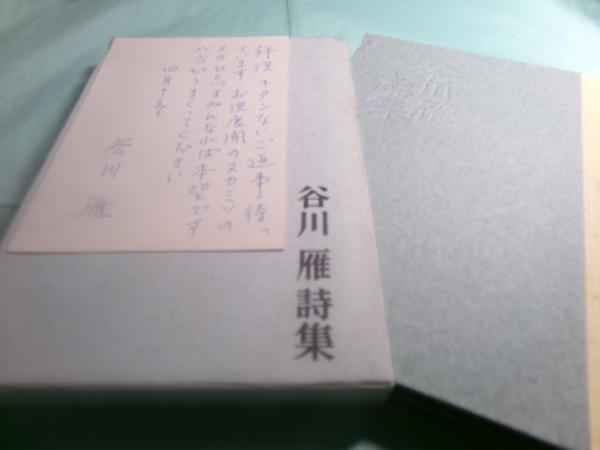 キタンないご返事待っ
ています お説展開のヌカミソの
ヌカひとつまみになれば本望です
八方切りまくってください
四月十五日
谷川 雁
谷川 雁詩集
谷川